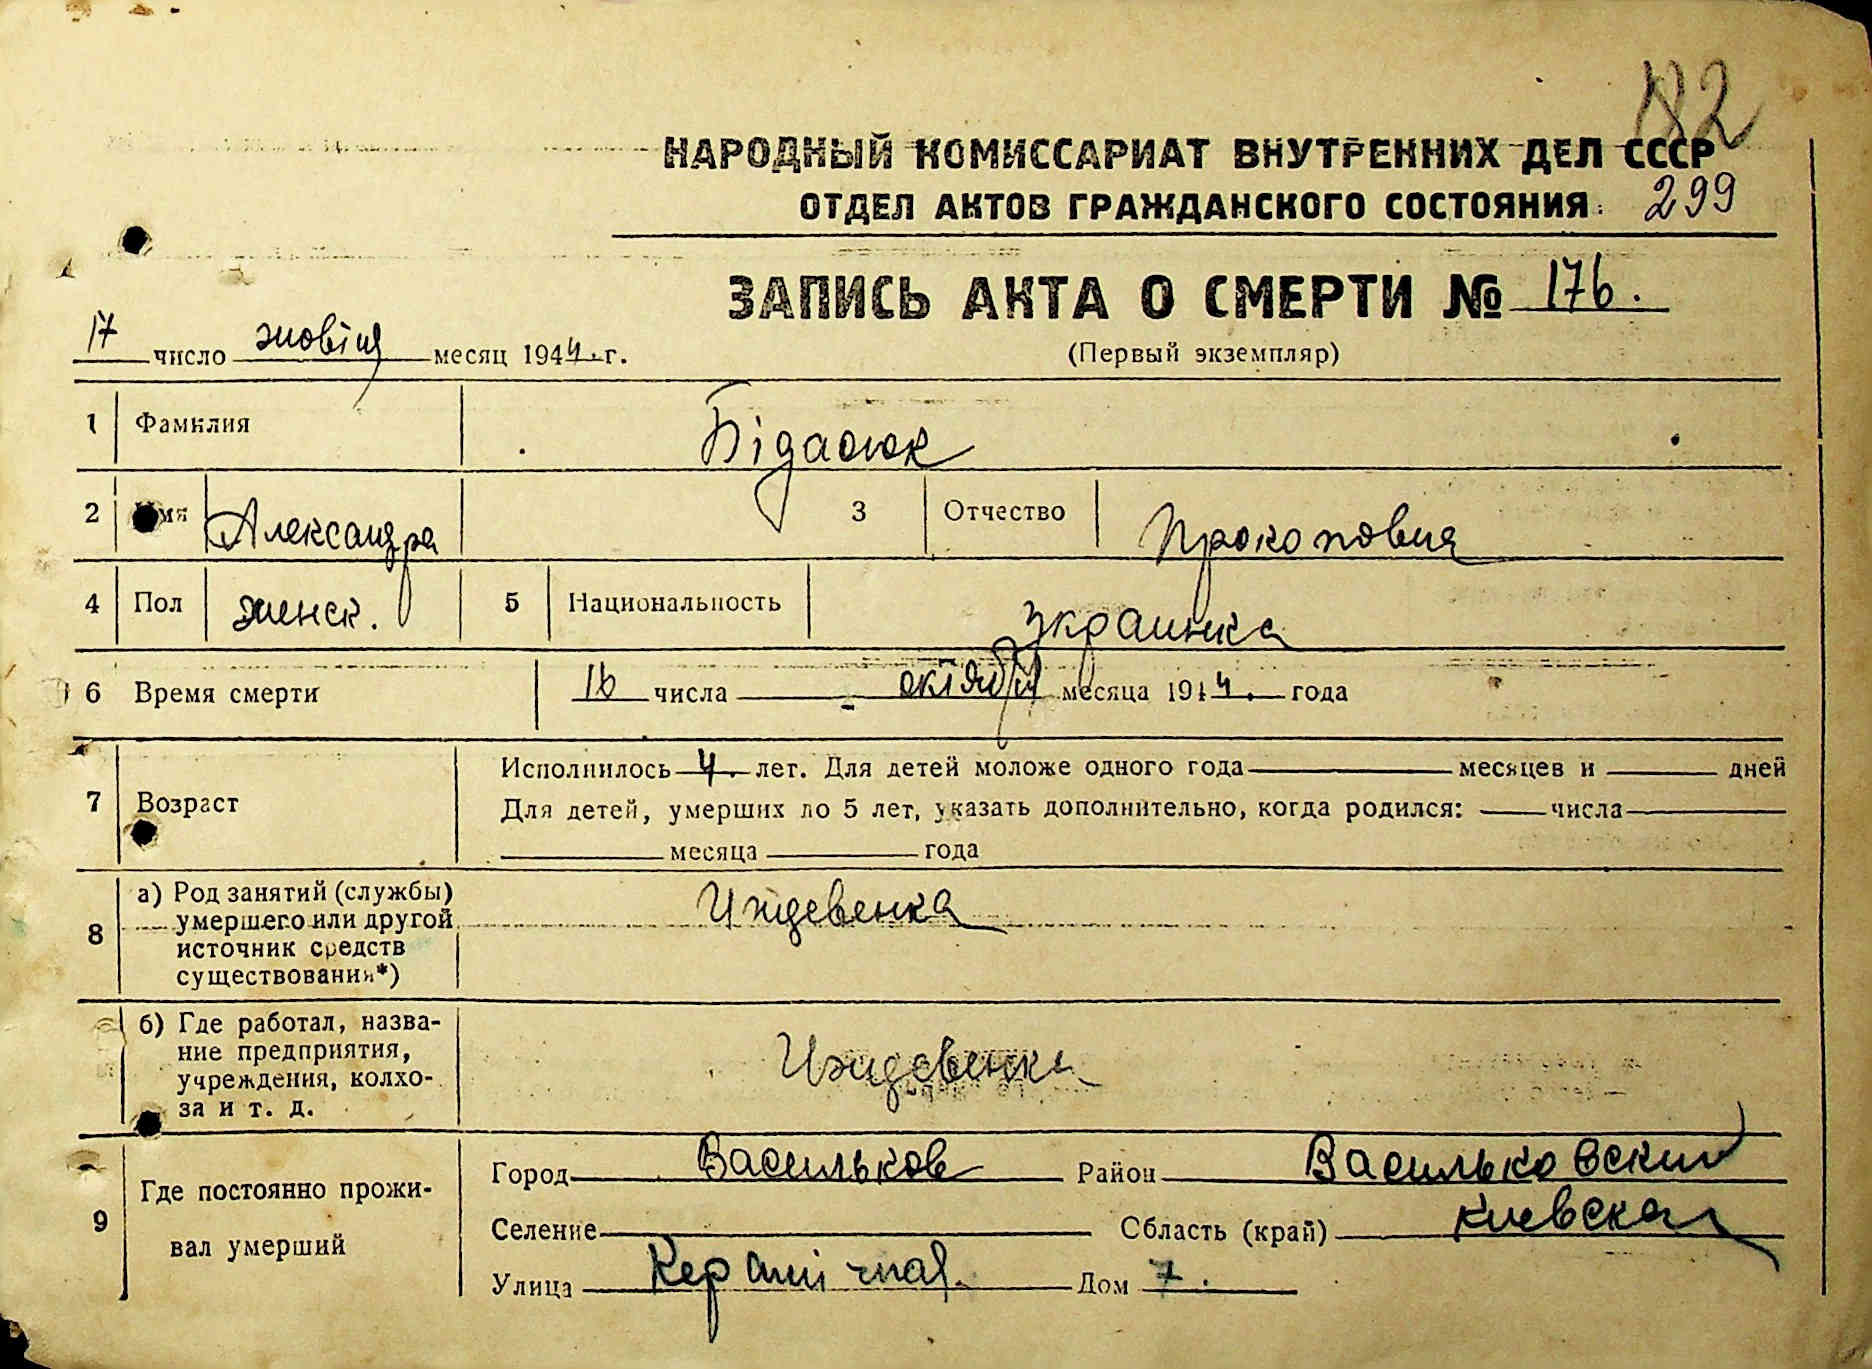 182
НАРОДНЫЙ КОМИССАРИАТ ВНУТРЕННИХ ДЕЛ СССР
ОТДЕЛ АКТОВ ГРАЖДАНСКОГО СОСТОЯНИЯ 299
ЗАПИСЬ АКТА О СМЕРТИ № 176.
17 число жовтня месяц 1944. г.
(Первый экземпляр)
1 Фамилия Бідасюк
2 Имя Александра 3 Отчество Прокоповна
4 Пол женск. 5 Национальность украинка
6 Время смерти 16 числа октября месяца 1944. года
7 Возраст Исполнилось 4. лет. Для детей моложе одного года месяцев и дней
Для детей, умерших до 5 лет, указать дополнительно, когда родился: числа
месяца года
8 а) Род занятий (службы) умершего или другой источник средств существования*) Иждевенка
б) Где работал, назва-
ние предприятия,
учреждения, колхо-
за и т. д. Иждевенка
9 Где постоянно прожи-
вал умерший
Город Васильков Район Васильковский
Селение Область (край) Киевская
Улица Керамічная. Дом 7.